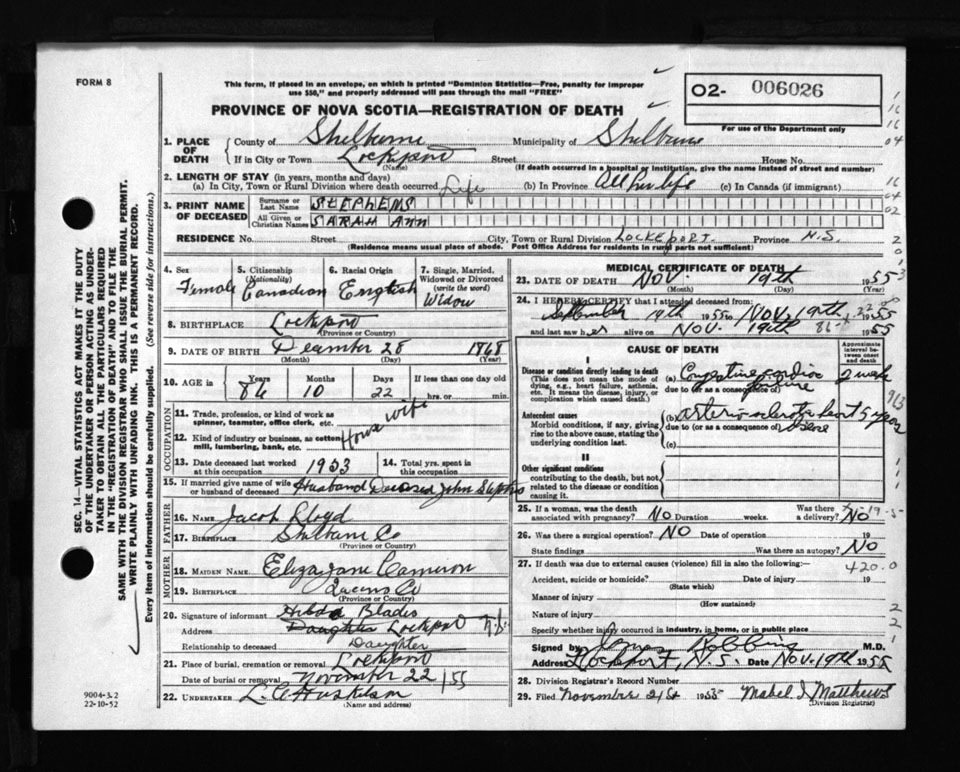 FORM 8
This form, if placed in an envelope, on which is printed "Dominion Statistics—Free, penalty for improper
use $50," and properly addressed will pass through the mail "FREE"
O2- 006026
For use of the Department only
PROVINCE OF NOVA SCOTIA—REGISTRATION OF DEATH
1. PLACE OF DEATH County of Shelburne Municipality of Shelburne
If in City or Town Lockport Street House No.
(Name) (If death occurred in a hospital or institution, give the name instead of street and number)
2. LENGTH OF STAY (in years, months and days)
(a) In City, Town or Rural Division where death occurred Life (b) In Province All her life (c) In Canada (if immigrant)
3. PRINT NAME OF DECEASED Surname or Last Name STEPHENS
All Given or Christian Names SARAH ANN
RESIDENCE No. Street City, Town or Rural Division LOCKEPORT. Province N.S.
(Residence means usual place of abode. Post Office Address for residents in rural parts not sufficient)
4. Sex Female
5. Citizenship (Nationality) Canadian
6. Racial Origin English
7. Single, Married, Widowed or Divorced (write the word) Widow
8. BIRTHPLACE Lockport
(Province or Country)
9. DATE OF BIRTH December 28 1868
(Month) (Day) (Year)
10. AGE in Years 86 Months 10 Days 22 If less than one day old hrs. or min.
OCCUPATION
11. Trade, profession, or kind of work as spinner, teamster, office clerk, etc. House wife
12. Kind of industry or business, as cotton mill, lumbering, bank, etc.
13. Date deceased last worked at this occupation 1953
14. Total yrs. spent in this occupation
15. If married give name of wife or husband of deceased Husband Deceased John Stephens
FATHER
16. NAME Jacob Lloyd
17. BIRTHPLACE Shelburne Co
(Province or Country)
MOTHER
18. MAIDEN NAME Eliza Jane Cameron
19. BIRTHPLACE Queens Co
(Province or Country)
20. Signature of informant Hilda Blades
Address Daughter Lockport N.S.
Relationship to deceased Daughter
21. Place of burial, cremation or removal Lockport
Date of burial or removal November 22/55
22. UNDERTAKER
(Name and address)
MEDICAL CERTIFICATE OF DEATH
23. DATE OF DEATH NOV. 19th 1955
(Month) (Day) (Year)
24. I HEREBY CERTIFY that I attended deceased from:
September 19th 1955 to NOV. 19th 1955
and last saw her alive on NOV. 19th 1955
CAUSE OF DEATH
Approximate interval between onset and death
I
Disease or condition directly leading to death
(This does not mean the mode of dying, e.g., heart failure, asthenia, etc. It means the disease, injury, or complication which caused death.)
(a) Congestive cardiac failure 2 weeks
due to (or as a consequence of)
Antecedent causes
Morbid conditions, if any, giving rise to the above cause, stating the underlying condition last.
(b) arteriosclerotic heart disease 5 years
due to (or as a consequence of)
(c)
II
Other significant conditions
contributing to the death, but not related to the disease or condition causing it.
25. If a woman, was the death associated with pregnancy? NO Duration weeks. Was there a delivery? NO
26. Was there a surgical operation? NO Date of operation 19
State findings Was there an autopsy? NO
27. If death was due to external causes (violence) fill in also the following:—
420.0
Accident, suicide or homicide? Date of injury 19
(State which)
Manner of injury
(How sustained)
Nature of injury
Specify whether injury occurred in industry, in home, or in public place
Signed by James Robbins M.D.
Address Lockeport, N.S. Date NOV. 19th 1955
28. Division Registrar's Record Number
29. Filed November 21st 1955 Mabel I. Matthews
(Division Registrar)
9004-3.2
22-10-52
SEC. 14—VITAL STATISTICS ACT MAKES IT THE DUTY
OF THE UNDERTAKER OR PERSON ACTING AS UNDER-
TAKER TO OBTAIN ALL THE PARTICULARS REQUIRED
IN THE "REGISTRATION OF DEATH" AND TO FILE THE
SAME WITH THE DIVISION REGISTRAR WHO SHALL ISSUE THE BURIAL PERMIT.
WRITE PLAINLY WITH UNFADING INK. THIS IS A PERMANENT RECORD.
Every item of information should be carefully supplied. (See reverse side for instructions.)